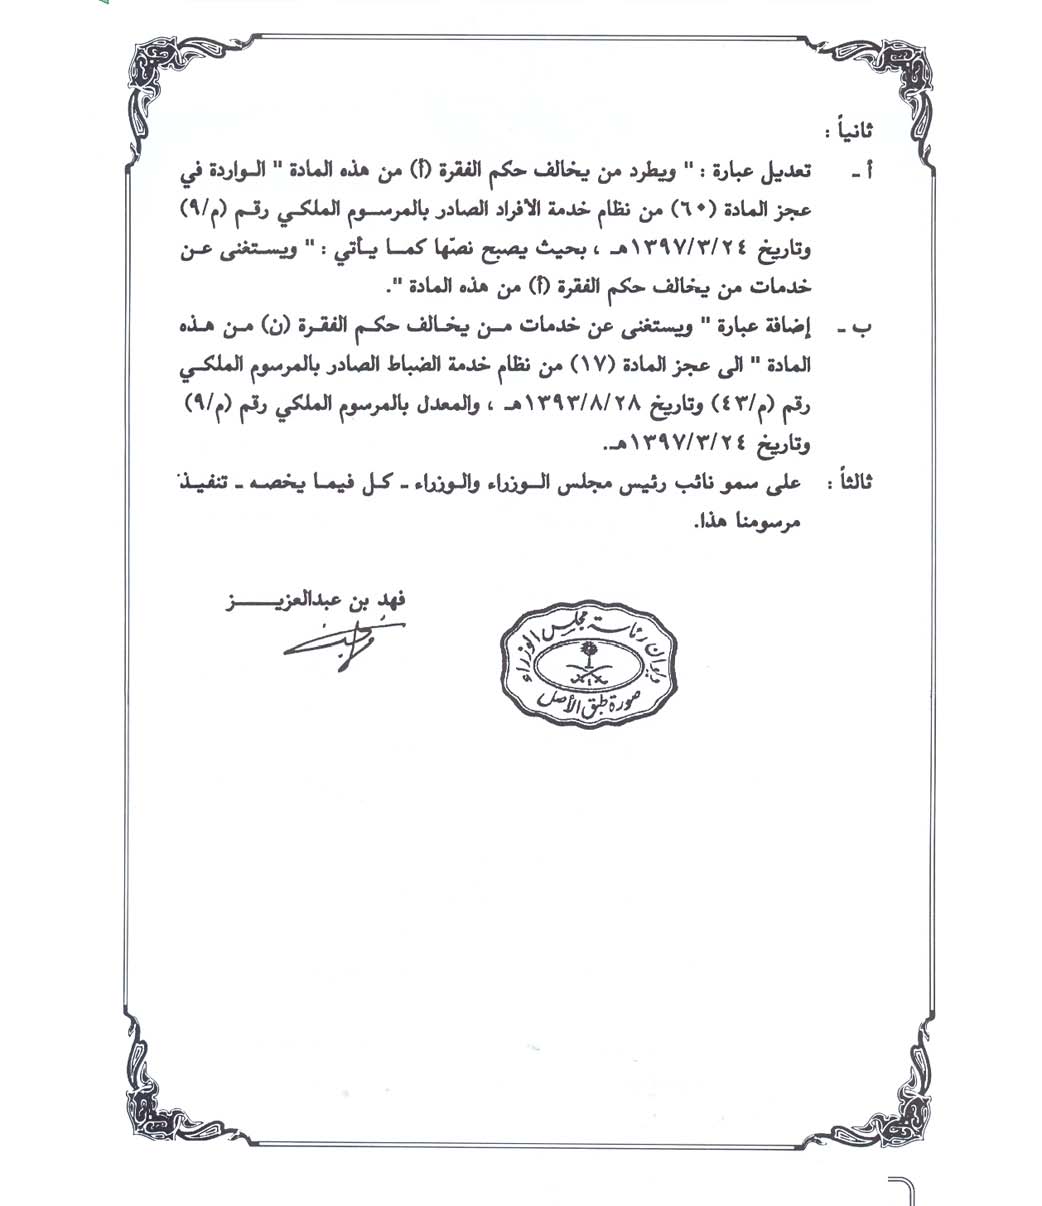 ثانياً :
أ - تعديل عبارة : " ويطرد من يخالف حكم الفقرة (أ) من هذه المادة " الـواردة في
عجز المادة (٦٠) من نظام خدمة الأفراد الصادر بالمرســوم الملكـي رقـم (م/٩)
وتاريخ ١٣٩٧/٣/٢٤هـ ، بحيث يصبح نصّها كمـا يـأتي : " ويسـتغنى عـن
خدمات من يخالف حكم الفقرة (أ) من هذه المادة ".
ب - إضافة عبارة " ويستغنى عن خدمات مـن يخـالف حكـم الفقـرة (ن) مـن هـذه
المادة " الى عجز المادة (١٧) من نظام خدمة الضباط الصادر بالمرسوم الملكـي
رقم (م/٤٣) وتاريخ ١٣٩٣/٨/٢٨هـ ، والمعدل بالمرسوم الملكي رقم (م/٩)
وتاريخ ١٣٩٧/٣/٢٤هـ.
ثالثاً : على سمو نائب رئيس مجلس الـوزراء والـوزراء ـ كـل فيمـا يخصـه ـ تنفيـذ
مرسومنا هذا.
فهد بن عبدالعزيـــــز
ديوان رئاسة مجلس الوزراء
صورة طبق الأصل